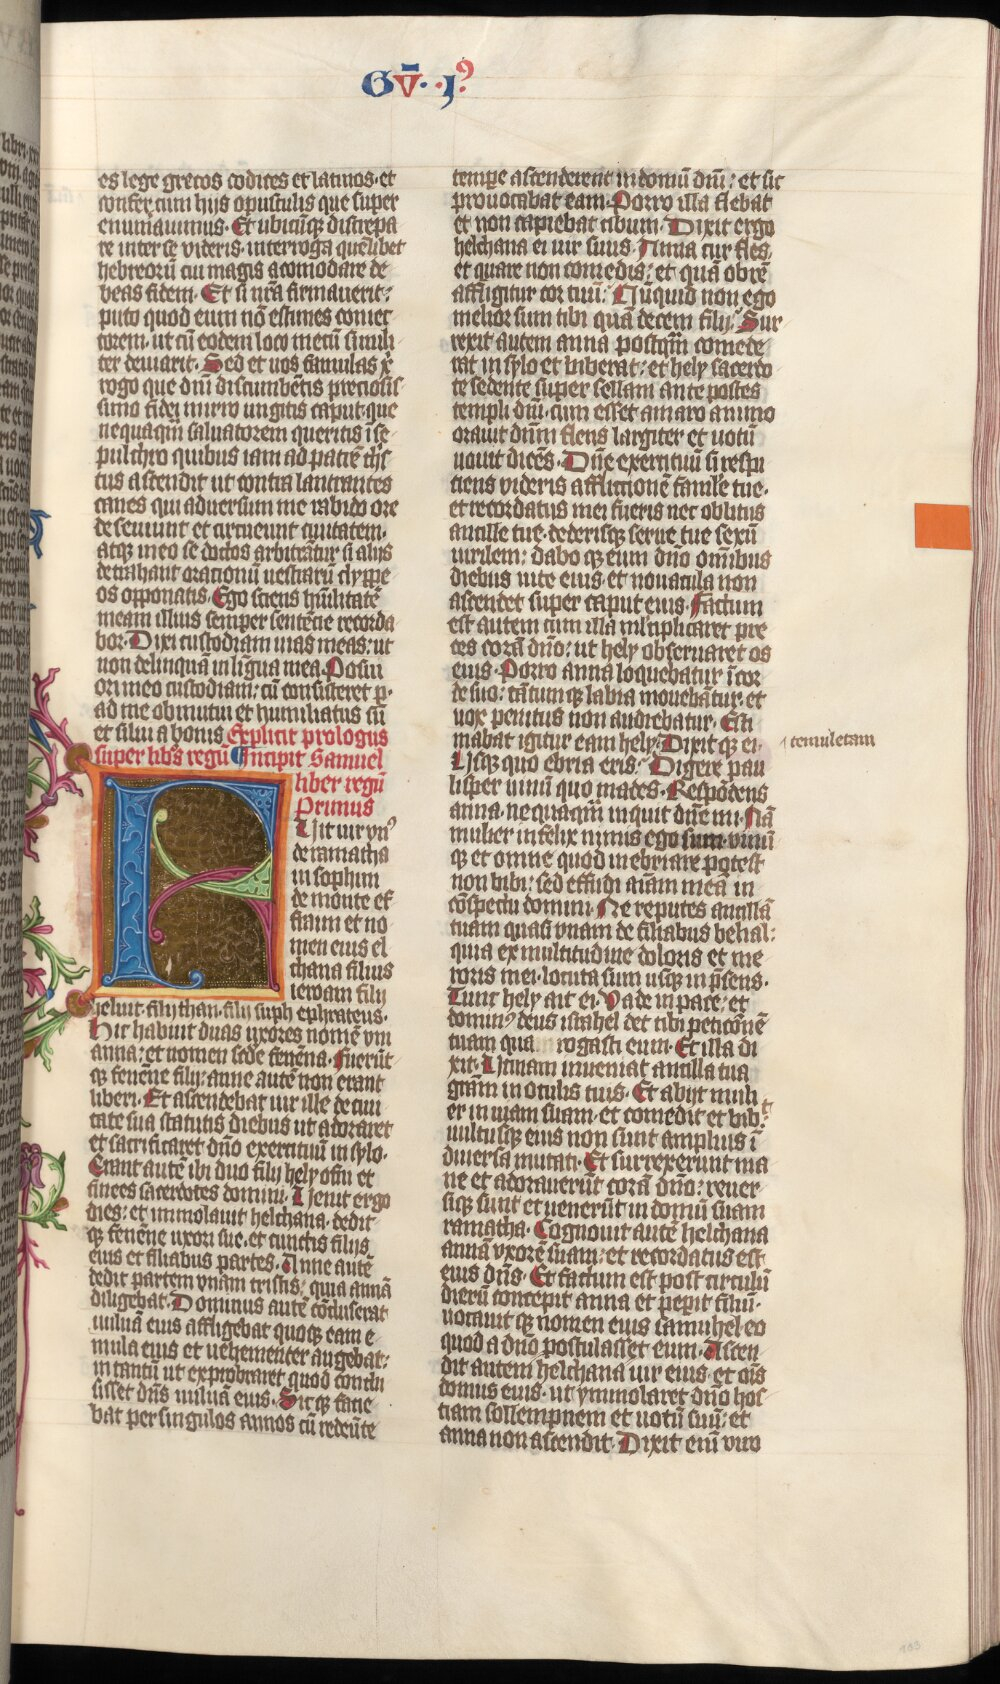 GV. I⁹
es lege grecos codices et latinos. et
confer cum hijs opusculis que super
enumauimus. Et ubicūq̄ discrepa
re inter se videris. interroga quēlibet
hebreorū cui magis acomodare de
beas fidem. Et si nr̄a firmauerit:
puto quod eum nō estimes coniec
torem. ut cū eodem loco mecū simili
ter deuiarit. Sed et uos famulas x
rogo que dn̄i discumbētis preciosis
simo fidei mirro ungitis caput. que
nequaqm̄ saluatorem queritis ī se
pulchro quibus iam ad patrē
tus ascendit ut contra lantrantes
canes qui aduersum me rabido ore
deseuiunt et circueunt ciuitatem.
atq̄ in eo se doctos arbitrātur si alijs
detrahant orationū uestrarū clyppe
os opponatis. Ego sciens hūilitatē
meam illius semper sentētie recorda
bor. Dixi custodiam uias meas: ut
non delinquā in ligua mea. Posui
ori meo custodiam: cū consisteret p̄.
ad me obmutui et humiliatus sū
et silui a bonis Explicit prologus
super libs regū Incipit Samuel
liber regū
Primus
Fuit uir vn⁹
de ramatha
im sophim
de monte ef
fraim et no
men eius el
chana filius
ieroam filij
heliut. filij than. filij suph ephrateus.
Hic habuit duas uxores nomē vni
anna: et nomen sc̄de fenēna. Fuerūt
q̄ fenēne filij: anne autē non erant
liberi. Et ascendebat uir ille de ciui
tate sua statutis diebus ut adoraret
et sacrificaret dn̄o exercituū in sylo.
Erant autē ibi duo filij hely ofni et
finees sacerdotes domini. Venit ergo
dies: et immolauit helchana. dedit
q̄ fenēne uxori sue. et cunctis filijs
eius et filiabus partes. Anne autē
dedit partem vnam tristis: quia annā
diligebat. Dominus autē cōcluserat
uuluā eius affligebat quoq̄ eam e
mula eius et uehementer augebat:
in tantū ut exprobraret quod conclu
sisset dn̄s uuluā eius. Sicq̄ facie
bat per singulos annos cū redeūte
tempe ascenderent in domū dn̄i: et sic
prouocabat eam. Porro illa flebat
et non capiebat cibum. Dixit ergo
helchana ei uir suus. Anna cur fles,
et quare non comedis: et quā obrē
affligitur cor tuū: Nūquid non ego
melior sum tibi quā decem filij. Sur
rexit autem anna postqm̄ comede
rat in sylo et biberat: et hely sacerdo
te sedente super sellam ante postes
templi dn̄i. cum esset amaro animo
orauit dn̄m flens largiter et uotū
uouit dicēs. Dn̄e exercituū si respi
ciens videris afflictionē famīle tue.
et recordatus mei fueris nec oblitus
ancille tue. dederisq̄ serue tue sexū
uirilem: dabo q̄ eum dn̄o om̄ibus
diebus uite eius. et nouacula non
ascendet super caput eius. Factum
est autem cum illa ml̄tiplicaret pre
ces corā dn̄o: ut hely obseruaret os
eius. Porro anna loquebatur ī cor
de suo: tātumq̄ labia mouebātur. et
uox penitus non audiebatur. Esti
mabat igitur eam hely. Dixitq̄ ei.
temuletam
Usq̄ quo ebria eris: Digere pau
lisper uinū quo mades. Respōdens
anna. nequaqm̄ inquit dn̄e mi. Nā
mulier infelix nimis ego sum. vinū
q̄ et omne quod inebriare potest
non bibi: sed effudi aīam meā in
cōspectu domini. Ne reputes ancillā
tuam quasi vnam de filiabus belial:
quia ex multitudine doloris et me
roris mei. locuta sum usq̄ in p̄sens.
Tunc hely ait ei. Vade in pace: et
domin⁹ deus israhel det tibi peticōnē
tuam qua rogasti eum. Et illa di
xit. Utinam inueniat ancilla tua
grām in oculis tuis. Et abijt muli
er in uiam suam. et comedit et bib.t
uultusq̄ eius non sunt amplius ī
diuersa mutati. Et surrexerunt ma
ne et adorauerūt corā dn̄o: reuer
siq̄ sunt et uenerūt in domū suam
ramatha. Cognouit autē helchana
annā vxorē suam: et recordatus est
eius dn̄s. Et factum est post circulū
dierū concepit anna et peperit filiū.
uocauit q̄ nomen eius samuhel. eo
quod a dn̄o postulasset eum. Ascen
dit autem helchana uir eius. et oīs
domus eius. ut ymmolaret dn̄o hos
tiam sollempnem et uotū suū: et
anna non ascendit. Dixit enī viro
193